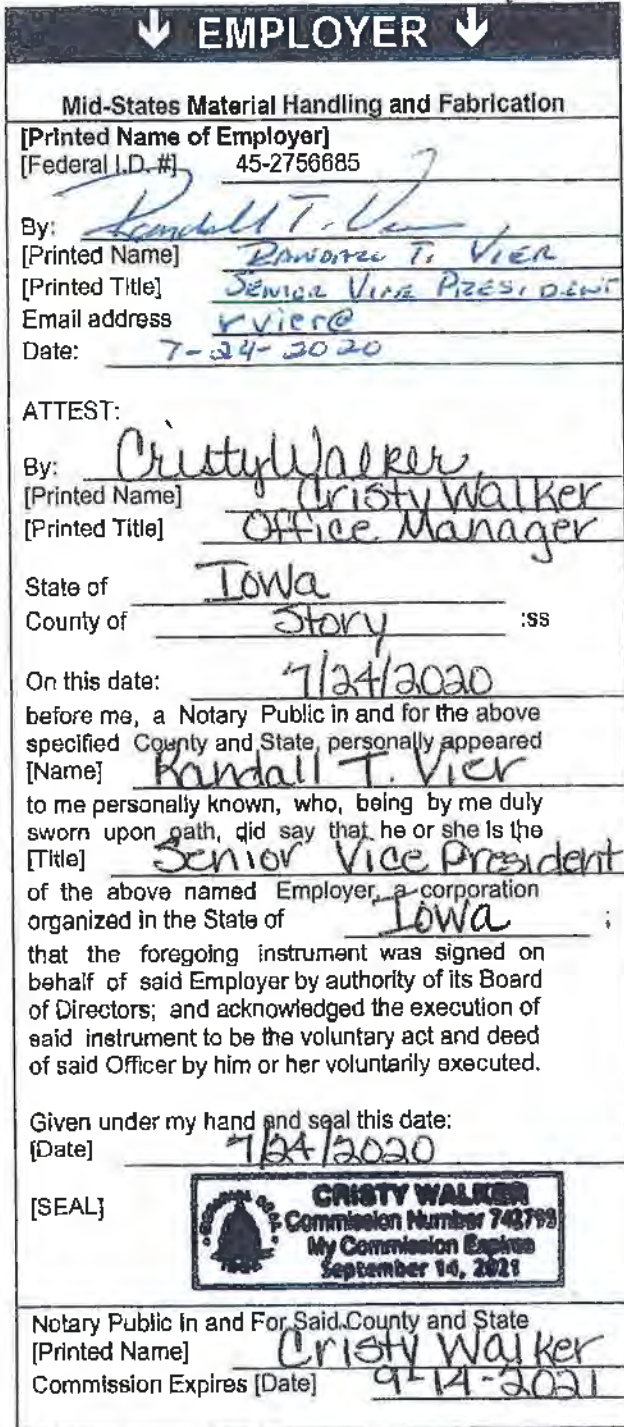 EMPLOYER
Mid-States Material Handling and Fabrication
[Printed Name of Employer]
[Federal I.D. #] 45-2756685
By: Randall T. Vier
[Printed Name] RANDALL T. VIER
[Printed Title] SENIOR VICE PRESIDENT
Email address rvier@
Date: 7-24-2020
ATTEST:
By: Cristy Walker
[Printed Name] Cristy Walker
[Printed Title] Office Manager
State of Iowa
County of Story :ss
On this date: 7/24/2020
before me, a Notary Public in and for the above
specified County and State, personally appeared
[Name] Randall T. Vier
to me personally known, who, being by me duly
sworn upon oath, did say that he or she is the
[Title] Senior Vice President
of the above named Employer, a corporation
organized in the State of Iowa ;
that the foregoing instrument was signed on
behalf of said Employer by authority of its Board
of Directors; and acknowledged the execution of
said instrument to be the voluntary act and deed
of said Officer by him or her voluntarily executed.
Given under my hand and seal this date:
[Date] 7/24/2020
[SEAL]
CRISTY WALKER
Commission Number
My Commission Expires
September 14, 2021
Notary Public In and For Said County and State
[Printed Name] Cristy Walker
Commission Expires [Date] 9-14-2021